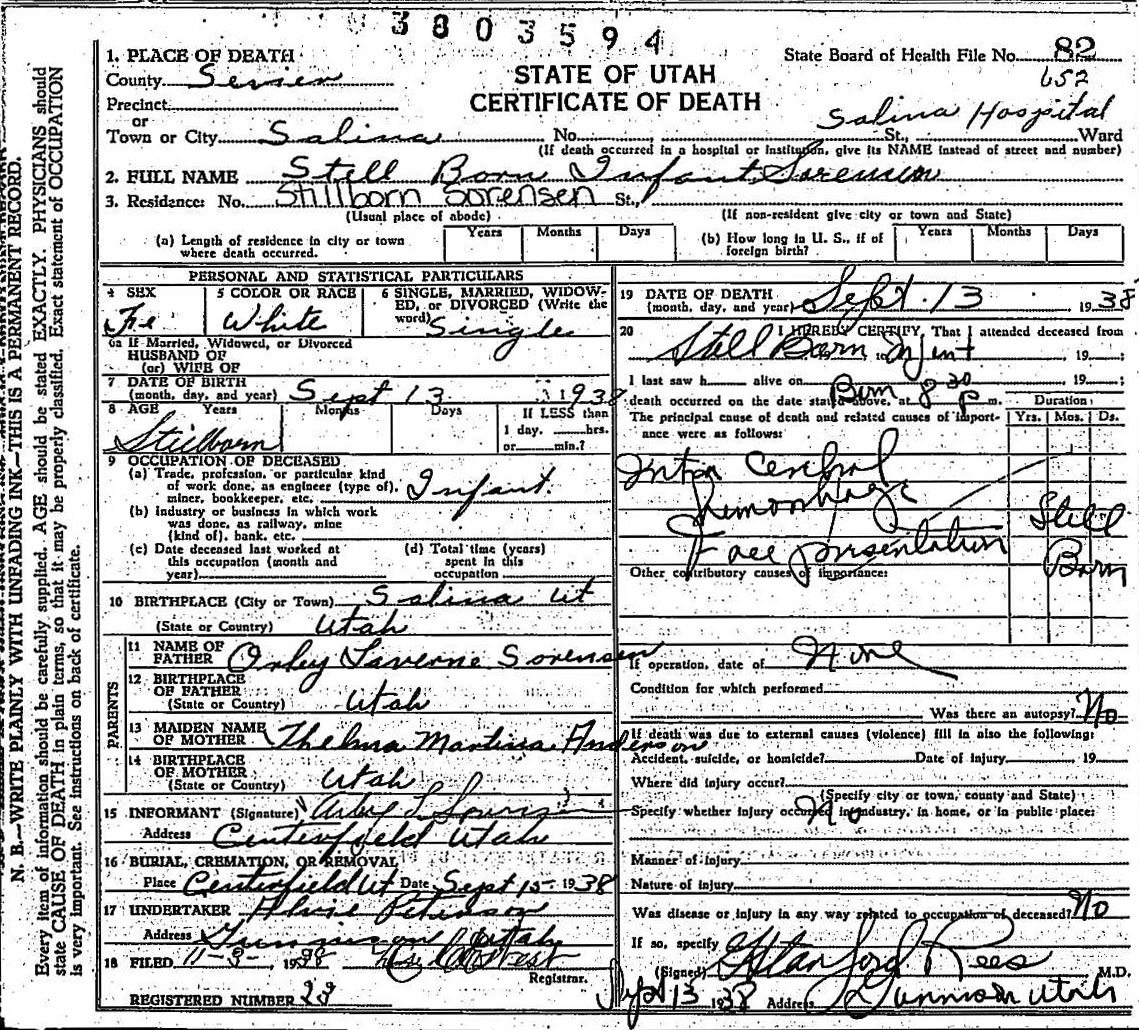 3803594
1. PLACE OF DEATH
State Board of Health File No. 82
County Sevier
STATE OF UTAH
652
Precinct
CERTIFICATE OF DEATH
or
Salina Hospital
Town or City Salina No. St., Ward
(If death occurred in a hospital or institution, give its NAME instead of street and number)
2. FULL NAME Still Born Infant Sorensen
3. Residence: No. Stillborn Sorensen St.,
(Usual place of abode) (If non-resident give city or town and State)
(a) Length of residence in city or town where death occurred. Years Months Days
(b) How long in U. S., if of foreign birth? Years Months Days
PERSONAL AND STATISTICAL PARTICULARS
4 SEX Fe
5 COLOR OR RACE White
6 SINGLE, MARRIED, WIDOWED, or DIVORCED (Write the word) Single
6a If Married, Widowed, or Divorced
HUSBAND OF
(or) WIFE OF
7 DATE OF BIRTH
(month, day, and year) Sept 13 1938
8 AGE Years Months Days If LESS than
1 day. hrs.
or min.?
Stillborn
9 OCCUPATION OF DECEASED
(a) Trade, profession, or particular kind
of work done, as engineer (type of),
miner, bookkeeper, etc. Infant.
(b) Industry or business in which work
was done, as railway, mine
(kind of), bank, etc.
(c) Date deceased last worked at
this occupation (month and
year)
(d) Total time (years)
spent in this
occupation
10 BIRTHPLACE (City or Town) Salina Ut
(State or Country) Utah
PARENTS
11 NAME OF
FATHER Orley Laverne Sorensen
12 BIRTHPLACE
OF FATHER
(State or Country) Utah
13 MAIDEN NAME
OF MOTHER Thelma Martina Anderson
14 BIRTHPLACE
OF MOTHER
(State or Country) Utah
15 INFORMANT (Signature)
Address Centerfield Utah
16 BURIAL, CREMATION, OR REMOVAL
Place Centerfield Ut Date Sept 15 1938
17 UNDERTAKER Peterson
Address Gunnison Utah
18 FILED 11-3- 1938
Registrar.
REGISTERED NUMBER 23
19 DATE OF DEATH
(month, day, and year) Sept. 13 1938
20 I HEREBY CERTIFY, That I attended deceased from
Still Born Infant to 19
I last saw h alive on 19
Born 8 30 P
death occurred on the date stated above, at m. Duration:
The principal cause of death and related causes of importance were as follows: Yrs. Mos. Ds.
Intra Cerebral
Hemorrhage
Face presentation
Still
Born
Other contributory causes of importance:
If operation, date of None
Condition for which performed
Was there an autopsy? No
If death was due to external causes (violence) fill in also the following:
Accident, suicide, or homicide? Date of Injury 19
Where did injury occur?
(Specify city or town, county and State)
Specify whether injury occurred in industry, in home, or in public place:
No
Manner of injury
Nature of injury
Was disease or injury in any way related to occupation of deceased? No
If so, specify
(Signed) Stanford Rees M.D.
Sept 13 1938 Address Gunnison Utah
N. B.—WRITE PLAINLY WITH UNFADING INK—THIS IS A PERMANENT RECORD.
Every item of information should be carefully supplied. AGE should be stated EXACTLY. PHYSICIANS should
state CAUSE OF DEATH in plain terms, so that it may be properly classified. Exact statement of OCCUPATION
is very important. See instructions on back of certificate.